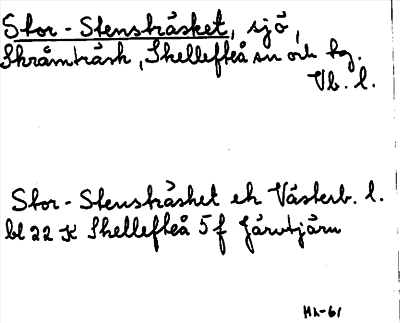 Stor-Stensträsket, sjö,
Skråmträsk, Skellefteå sn och tg.
Vb. l.
Stor-Stensträsket ek Västerb. l.
bl 22 K Skellefteå 5 f Järvtjärn
HL-61